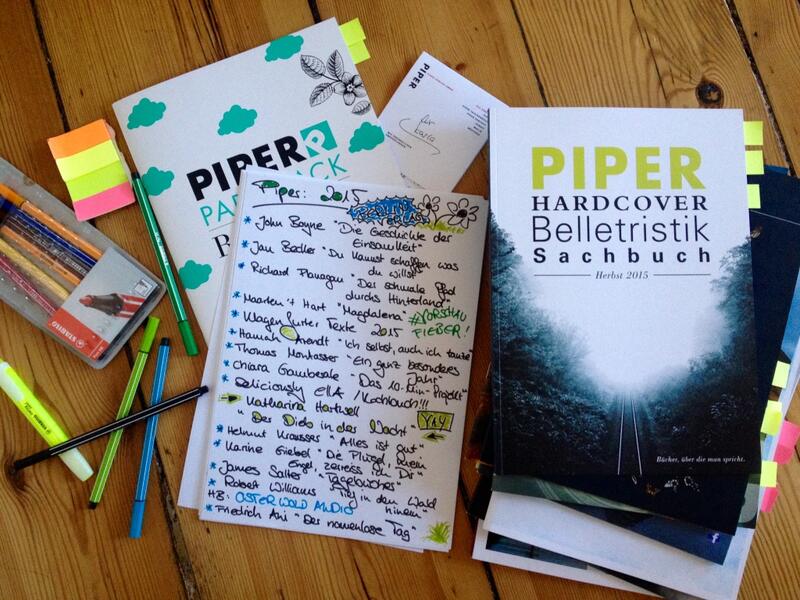 PIPER
PIPER
Für
Karla
Piper: 2015
VERLAG
* John Boyne "Die Geschichte der
Einsamkeit"
* Jan Becker "Du kannst schaffen was
du willst"
* Richard Flanagan "Der schmale Pfad
durchs Hinterland"
* Maarten 't Hart "Magdalena"
#VORSCHAU
FIEBER!
* Wagenbacher Texte 2015
* Hannah Arendt "Ich selbst, auch ich tanze"
* Thomas Montasser "Ein ganz besonderes
Jahr"
* Chiara Gamberale "Das 10-Min-Projekt"
* Deliciously Ella /Kochbuch!!!
Katharina Hartwell
"Der Dieb in der Nacht"
YAY
* Helmut Krausser "Alles ist gut"
* Karine Giebel "Die Flügel, mein
Engel, zerreiss ich Dir"
* James Salter "Tagebücher"
* Robert Williams "Tief in den Wald
hinein"
HB: OSTERWALD AUDIO
* Friedrich Ani "Der namenlose Tag"
PIPER
HARDCOVER
Belletristik
Sachbuch
Herbst 2015
Bücher, über die man spricht.
STABILO